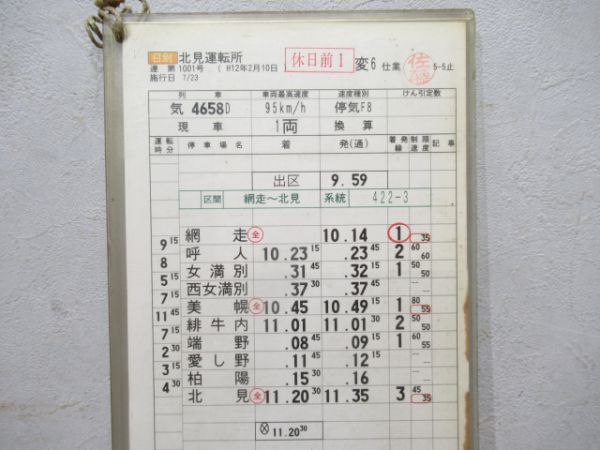 日別 北見運転所 休日前1 変6 仕業 佐藤 5-5止
運 第 1001号 ( H12年2月10日
施行日 7/23
列 車 車両最高速度 速度種別 けん引定数
気 4658D 95km/h 停気F8
現 車 1両 換 算
運転時分 停車場名 着 発(通) 着発線 制限速度 記事
出区 9.59
区間 網走～北見 系統 422-3
網走 全 10.14 1 35
9 15
呼人 10.23 15 .23 45 2 60 60
8
女満別 .31 45 .32 15 1 50 50
5 15
西女満別 .37 30 .37 45
7 15
美幌 全 10.45 10.49 15 1 80 55
11 45
緋牛内 11.01 11.01 30 2 50 50
7 15
端野 .08 45 .09 15 1 60 55
2 30
愛し野 .11 45 .12 15
3 15
柏陽 .15 30 .16
4 30
北見 全 11.20 30 11.35 3 45 35
⊗ 11.20 30